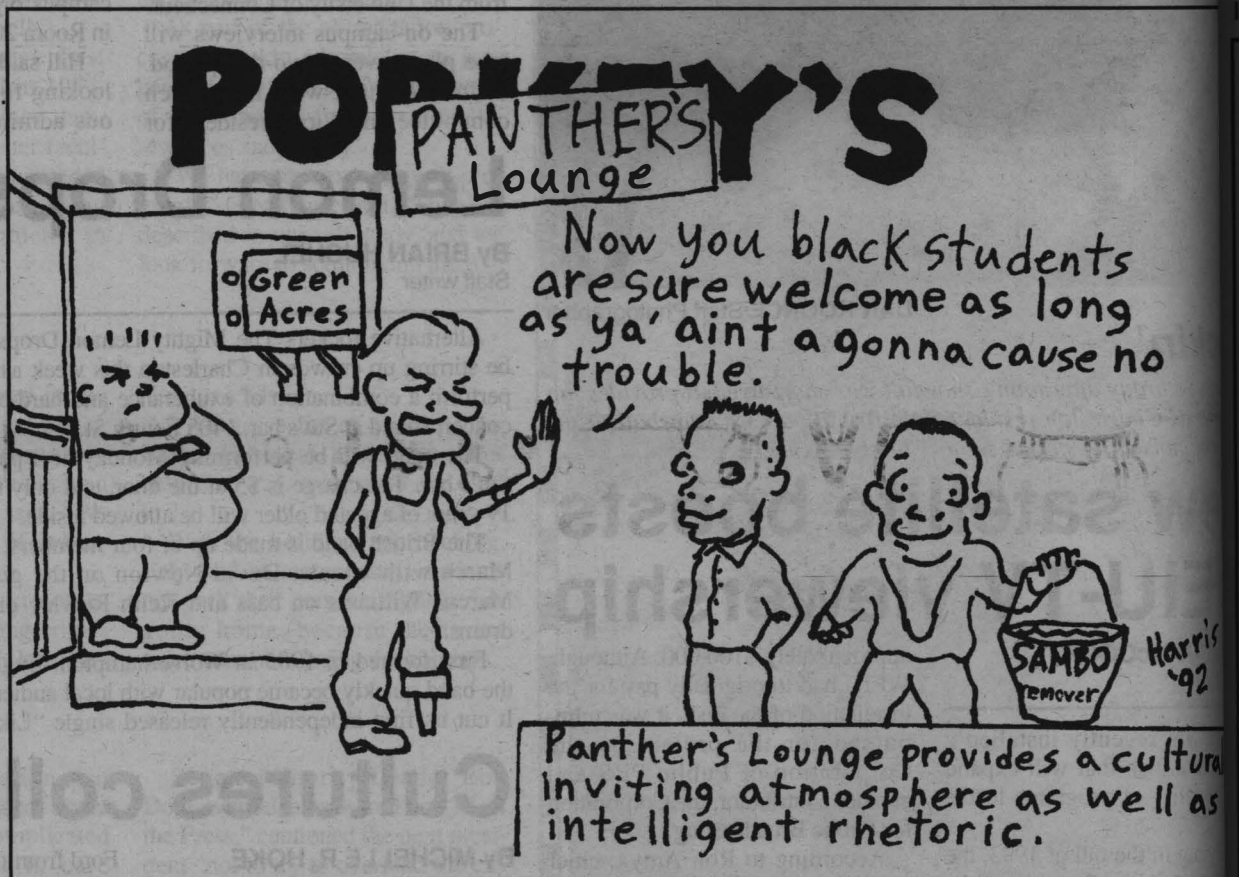 POP Y'S
PANTHER'S
Lounge
Green
Acres
Now you black students
are sure welcome as long
as ya' aint a gonna cause no
trouble.
SAMBO
remover
Harris
'92
Panther's Lounge provides a cultura
inviting atmosphere as well as
intelligent rhetoric.